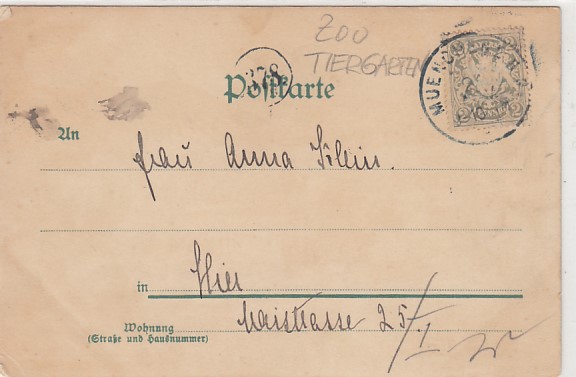 ZOO
TIERGARTEN
378
Postkarte
MUENCHEN
2 2
An
Frau Anna Klein.
in Hier
Wohnung
(Straße und Hausnummer)
Maistrasse 25/I